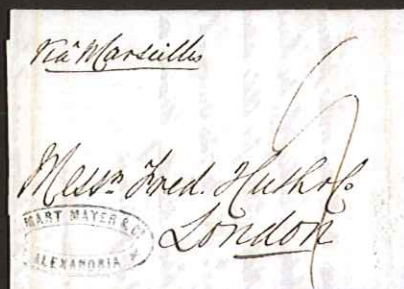 Via Marseilles
Messrs Fred. Huth & Co.
London
MART MAYER & Co
ALEXANDRIA